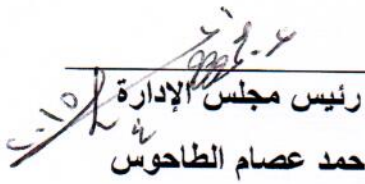 رئيس مجلس الإدارة
حمد عصام الطاحوس